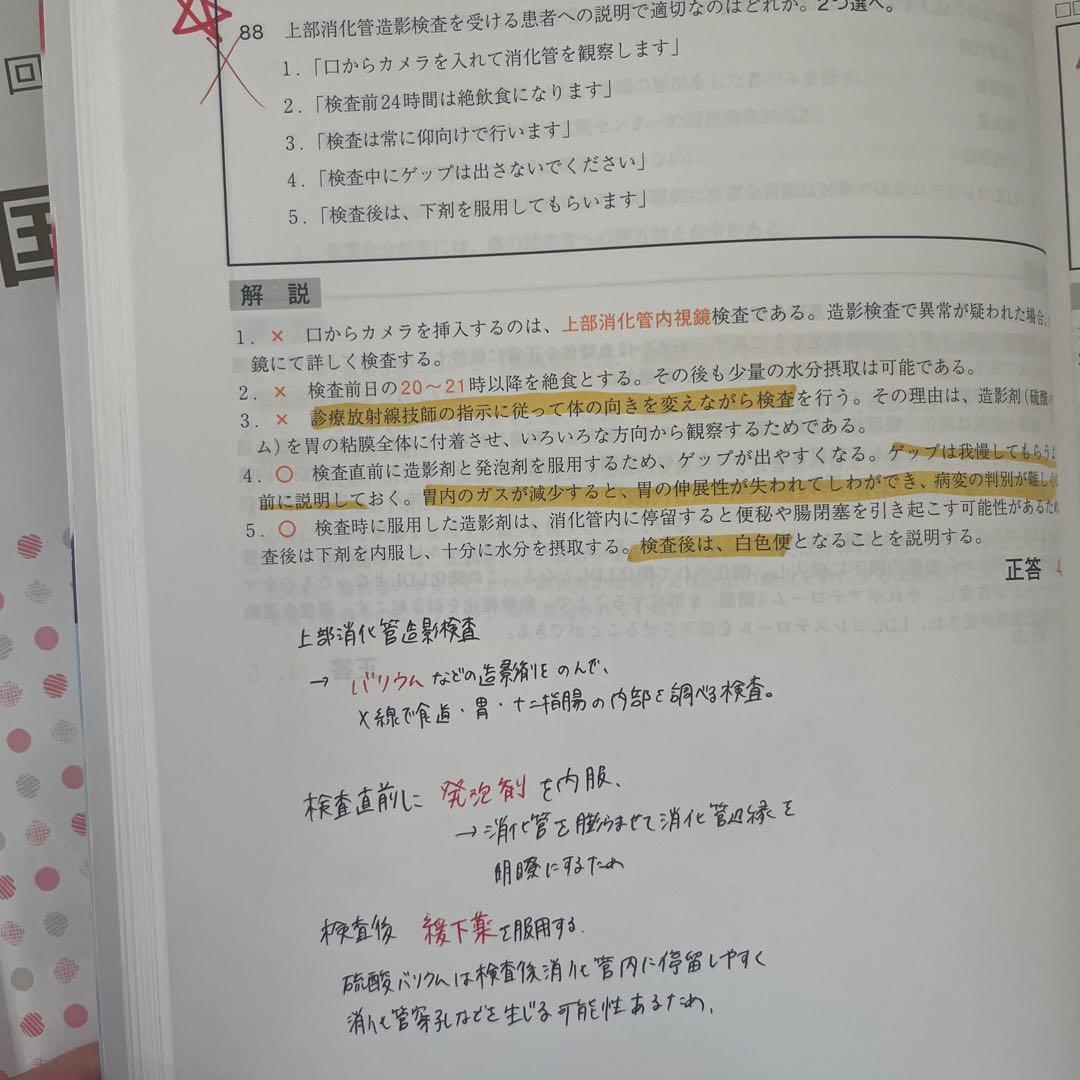 88 上部消化管造影検査を受ける患者への説明で適切なのはどれか。2つ選べ。
1.「口からカメラを入れて消化管を観察します」
2.「検査前24時間は絶飲食になります」
3.「検査は常に仰向けで行います」
4.「検査中にゲップは出さないでください」
5.「検査後は、下剤を服用してもらいます」
解 説
1. × 口からカメラを挿入するのは、上部消化管内視鏡検査である。造影検査で異常が疑われた場合、
鏡にて詳しく検査する。
2. × 検査前日の20〜21時以降を絶食とする。その後も少量の水分摂取は可能である。
3. × 診療放射線技師の指示に従って体の向きを変えながら検査を行う。その理由は、造影剤(硫酸
ム)を胃の粘膜全体に付着させ、いろいろな方向から観察するためである。
4. ○ 検査直前に造影剤と発泡剤を服用するため、ゲップが出やすくなる。ゲップは我慢してもらう
前に説明しておく。胃内のガスが減少すると、胃の伸展性が失われてしわができ、病変の判別が難し
5. ○ 検査時に服用した造影剤は、消化管内に停留すると便秘や腸閉塞を引き起こす可能性があるため
査後は下剤を内服し、十分に水分を摂取する。検査後は、白色便となることを説明する。
正答 4
上部消化管造影検査
→ バリウムなどの造影剤をのんで、
X線で食道・胃・十二指腸の内部を調べる検査。
検査直前に 発泡剤を内服、
→消化管を膨らませて消化管辺縁を
明瞭にするため
検査後 緩下薬を服用する.
硫酸バリウムは検査後消化管内に停留しやすく
消化管穿孔などを生じる可能性あるため.
回
国